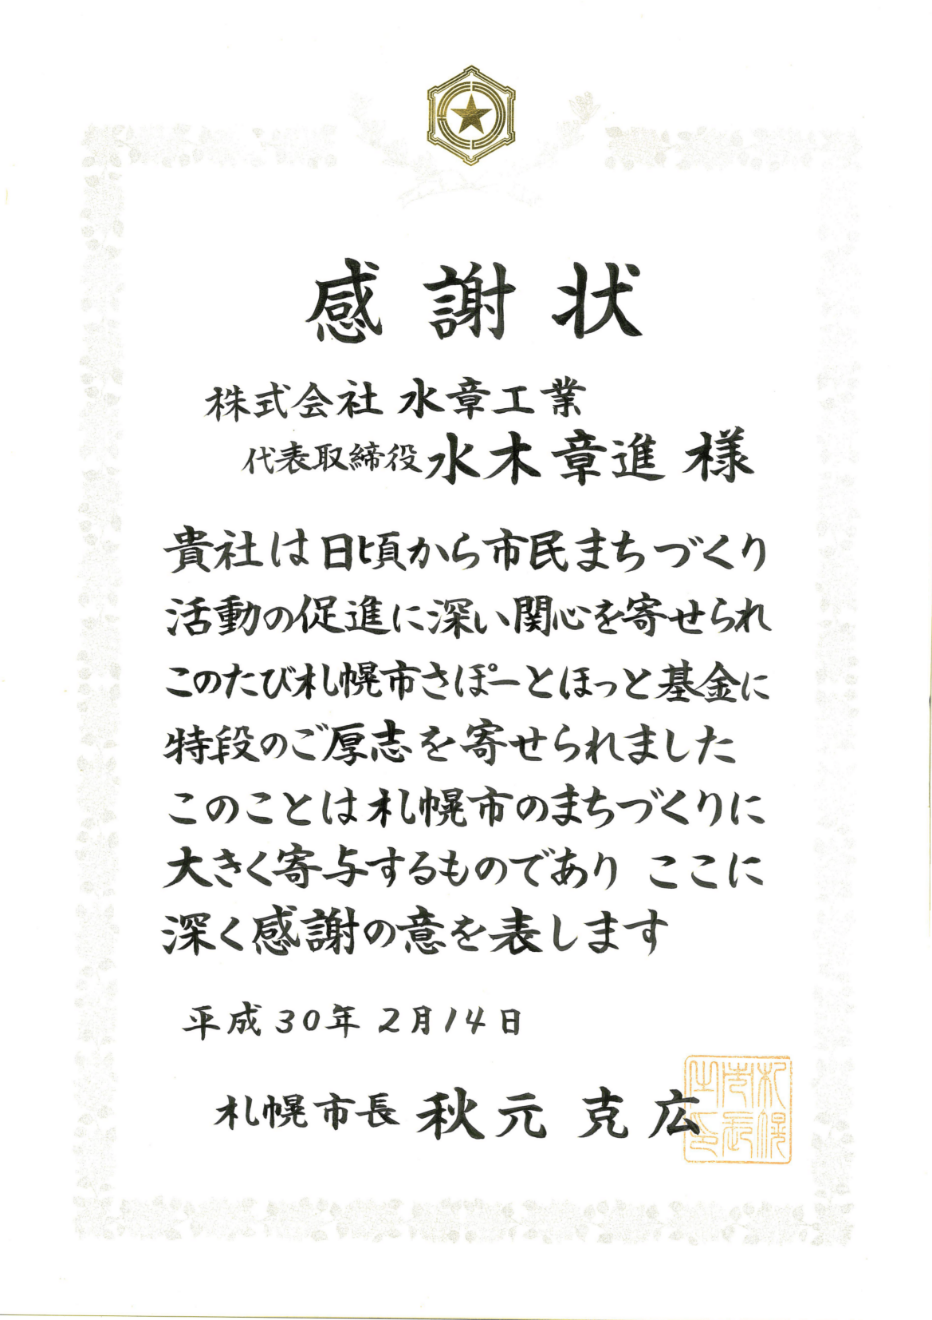 感謝状
株式会社 水章工業
代表取締役 水木章進 様
貴社は日頃から市民まちづくり
活動の促進に深い関心を寄せられ
このたび札幌市さぽーとほっと基金に
特段のご厚志を寄せられました
このことは札幌市のまちづくりに
大きく寄与するものであり ここに
深く感謝の意を表します
平成30年 2月14日
札幌市長 秋元 克広
札幌
市長
之印